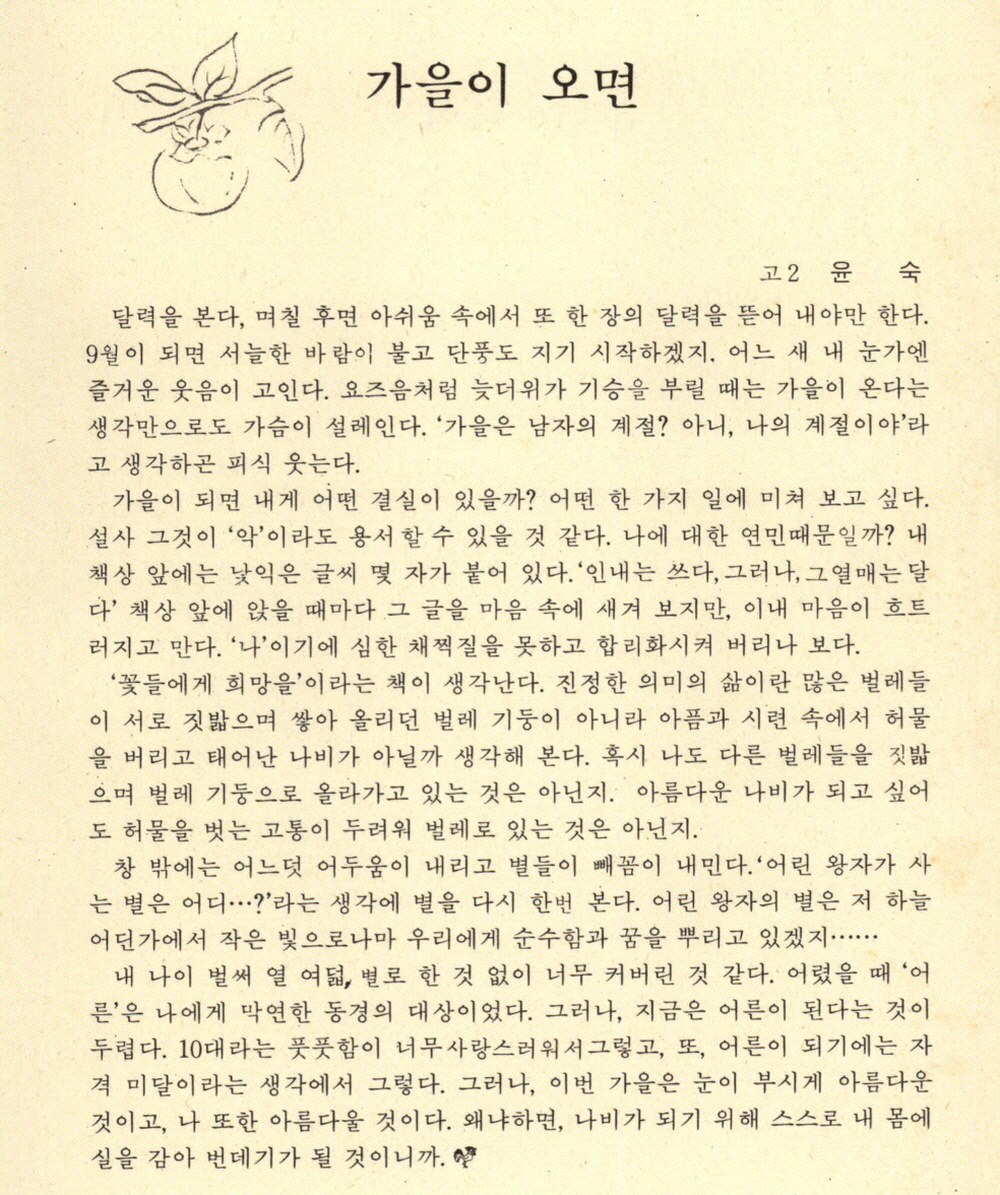 가을이 오면
고2 윤 숙
달력을 본다, 며칠 후면 아쉬움 속에서 또 한 장의 달력을 뜯어 내야만 한다.
9월이 되면 서늘한 바람이 불고 단풍도 지기 시작하겠지. 어느 새 내 눈가엔
즐거운 웃음이 고인다. 요즈음처럼 늦더위가 기승을 부릴 때는 가을이 온다는
생각만으로도 가슴이 설레인다. ‘가을은 남자의 계절? 아니, 나의 계절이야’라
고 생각하곤 피식 웃는다.
가을이 되면 내게 어떤 결실이 있을까? 어떤 한 가지 일에 미쳐 보고 싶다.
설사 그것이 ‘악’이라도 용서할 수 있을 것 같다. 나에 대한 연민때문일까? 내
책상 앞에는 낯익은 글씨 몇 자가 붙어 있다. ‘인내는 쓰다, 그러나, 그 열매는 달
다’ 책상 앞에 앉을 때마다 그 글을 마음 속에 새겨 보지만, 이내 마음이 흐트
러지고 만다. ‘나’이기에 심한 채찍질을 못하고 합리화시켜 버리나 보다.
‘꽃들에게 희망을’이라는 책이 생각난다. 진정한 의미의 삶이란 많은 벌레들
이 서로 짓밟으며 쌓아 올리던 벌레 기둥이 아니라 아픔과 시련 속에서 허물
을 버리고 태어난 나비가 아닐까 생각해 본다. 혹시 나도 다른 벌레들을 짓밟
으며 벌레 기둥으로 올라가고 있는 것은 아닌지. 아름다운 나비가 되고 싶어
도 허물을 벗는 고통이 두려워 벌레로 있는 것은 아닌지.
창 밖에는 어느덧 어두움이 내리고 별들이 빼꼼이 내민다. ‘어린 왕자가 사
는 별은 어디…?’라는 생각에 별을 다시 한번 본다. 어린 왕자의 별은 저 하늘
어딘가에서 작은 빛으로나마 우리에게 순수함과 꿈을 뿌리고 있겠지……
내 나이 벌써 열 여덟, 별로 한 것 없이 너무 커버린 것 같다. 어렸을 때 ‘어
른’은 나에게 막연한 동경의 대상이었다. 그러나, 지금은 어른이 된다는 것이
두렵다. 10대라는 풋풋함이 너무 사랑스러워서 그렇고, 또, 어른이 되기에는 자
격 미달이라는 생각에서 그렇다. 그러나, 이번 가을은 눈이 부시게 아름다운
것이고, 나 또한 아름다울 것이다. 왜냐하면, 나비가 되기 위해 스스로 내 몸에
실을 감아 번데기가 될 것이니까.